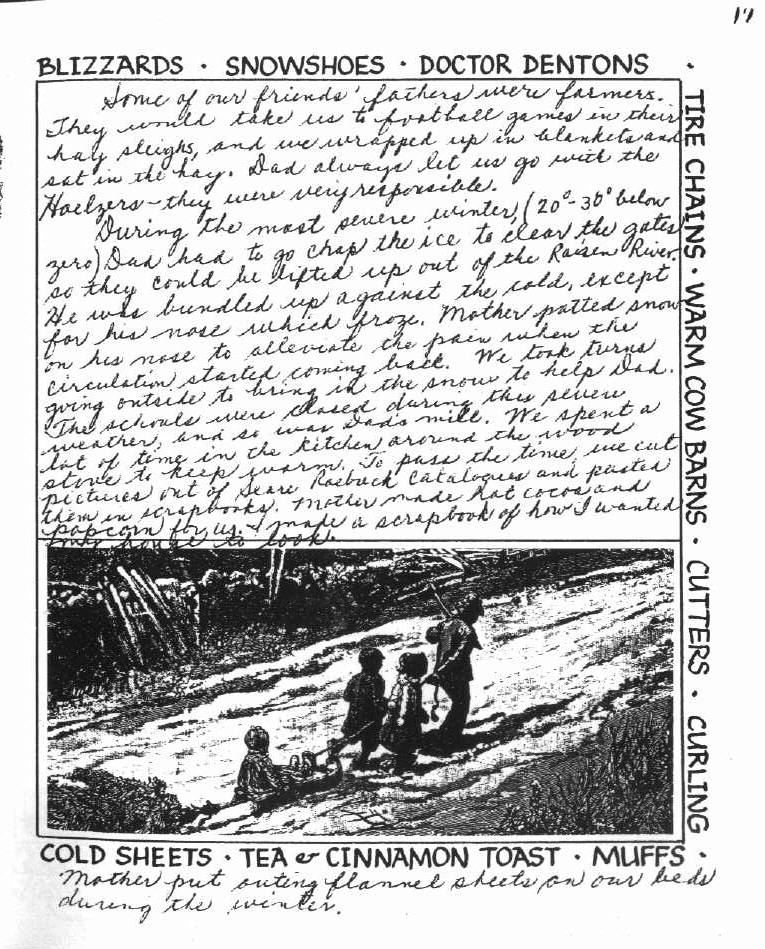 17
BLIZZARDS · SNOWSHOES · DOCTOR DENTONS ·
Some of our friends' fathers were farmers.
They would take us to football games in their
hay sleighs, and we wrapped up in blankets and
sat in the hay. Dad always let us go with the
Hoelzers - they were very responsible.
During the most severe winter, (20° - 30° below
zero) Dad had to go chop the ice to clear the gates
so they could be lifted up out of the Raisen River.
He was bundled up against the cold, except
for his nose which froze. Mother patted snow
on his nose to alleviate the pain when the
circulation started coming back. We took turns
going outside to bring in the snow to help Dad.
The schools were closed during this severe
weather, and so was Dad's mill. We spent a
lot of time in the kitchen around the wood
stove to keep warm. To pass the time, we cut
pictures out of Sears Roebuck Catalogues and pasted
them in scrapbooks. Mother made hot cocoa and
popcorn for us. I made a scrapbook of how I wanted
my house to look.
TIRE CHAINS · WARM COW BARNS · CUTTERS · CURLING
COLD SHEETS · TEA & CINNAMON TOAST · MUFFS ·
Mother put outing flannel sheets on our beds
during the winter.